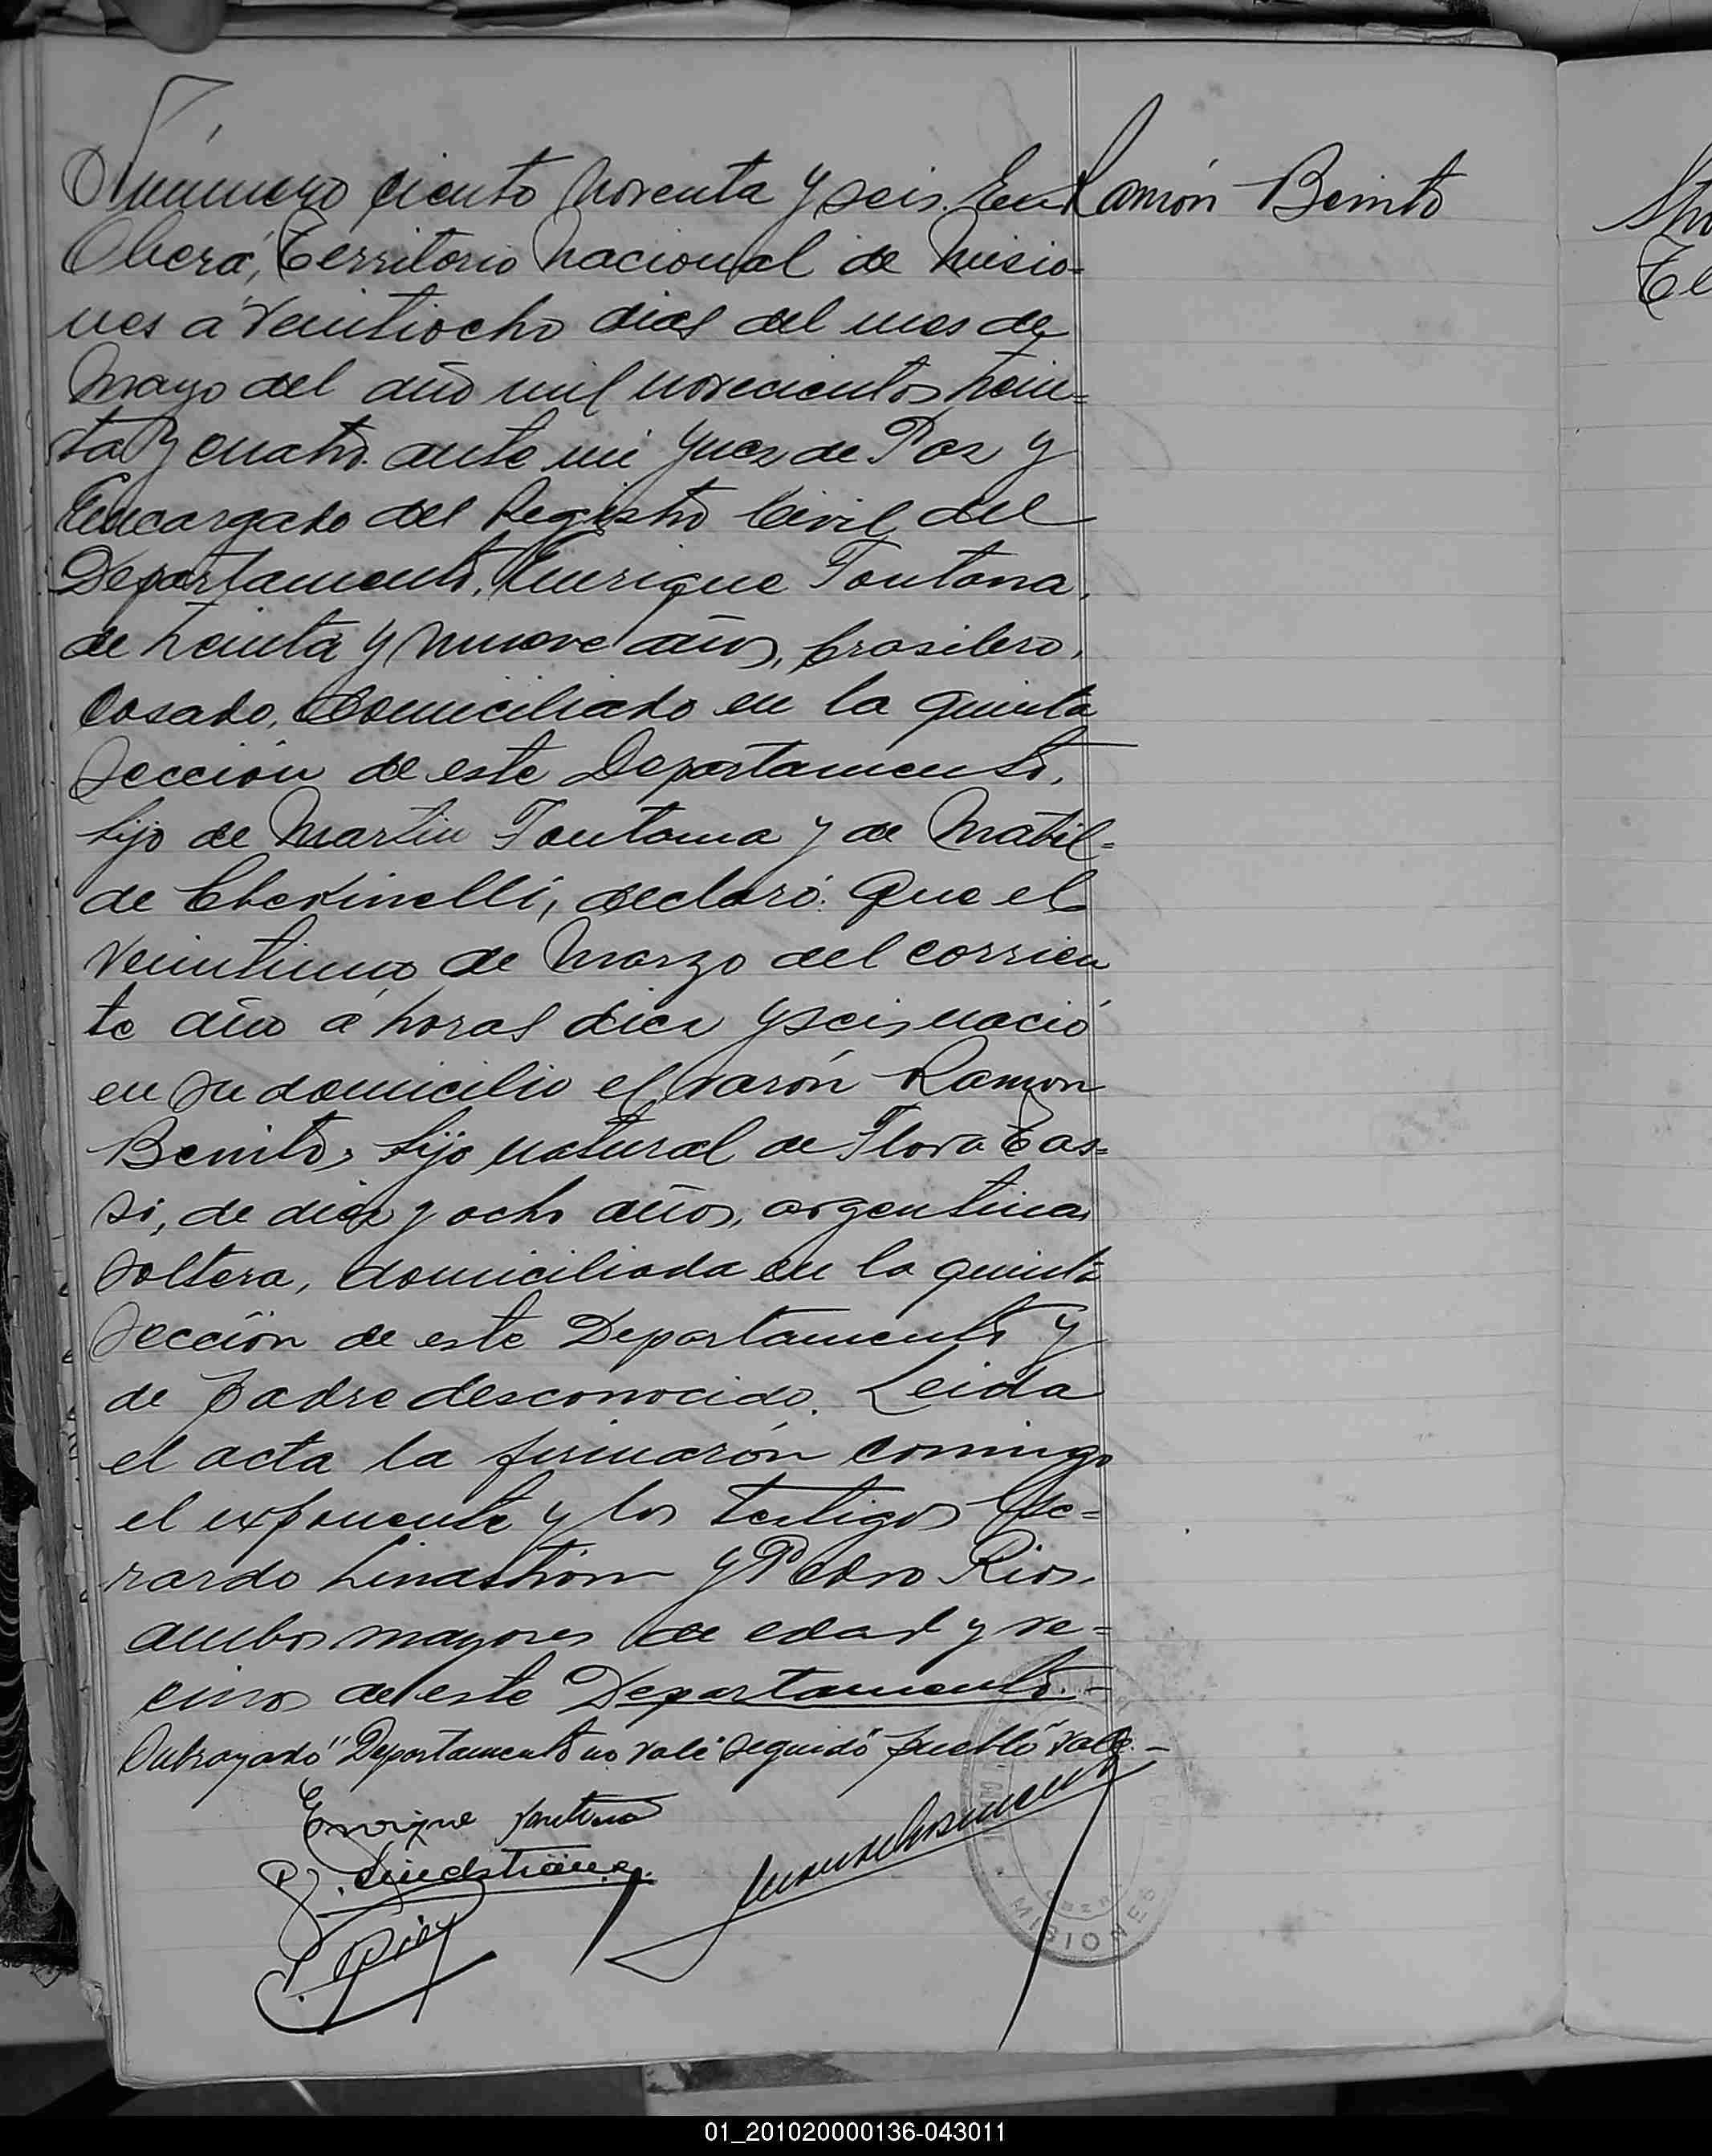 Número ciento noventa y seis. En
Ramón Benito
Oberá, Territorio Nacional de Misio-
nes a veintiocho dias del mes de
Mayo del año mil novecientos trein-
ta y cuatro. ante mi Juez de Paz y
Encargado del Registro Civil del
Departamento, Enrique Fontana,
de treinta y nueve años, brasilero,
casado, domiciliado en la quinta
Sección de este Departamento,
hijo de Martin Fontana y de Matil-
de declaró: Que el
veintiuno de Marzo del corrien
te año a horas diez y seis nació
en su domicilio el varón Ramon
Benito, hijo natural de Flora Tas-
si, de diez y ocho años, argentina,
soltera, domiciliada en la quinta
Sección de este Departamento y
de padre desconocido. Leida
el acta la firmarón conmigo
el exponente y los testigos Ge-
rardo Lindström y Pedro Rios,
ambos mayores de edad y ve-
cinos de este Departamento.-
Subrayado "Departamento no vale" seguido "pueblo" vale.-
Enrique Fontana
G. Lindström
P. Rios
MISIONES
01_201020000136-043011